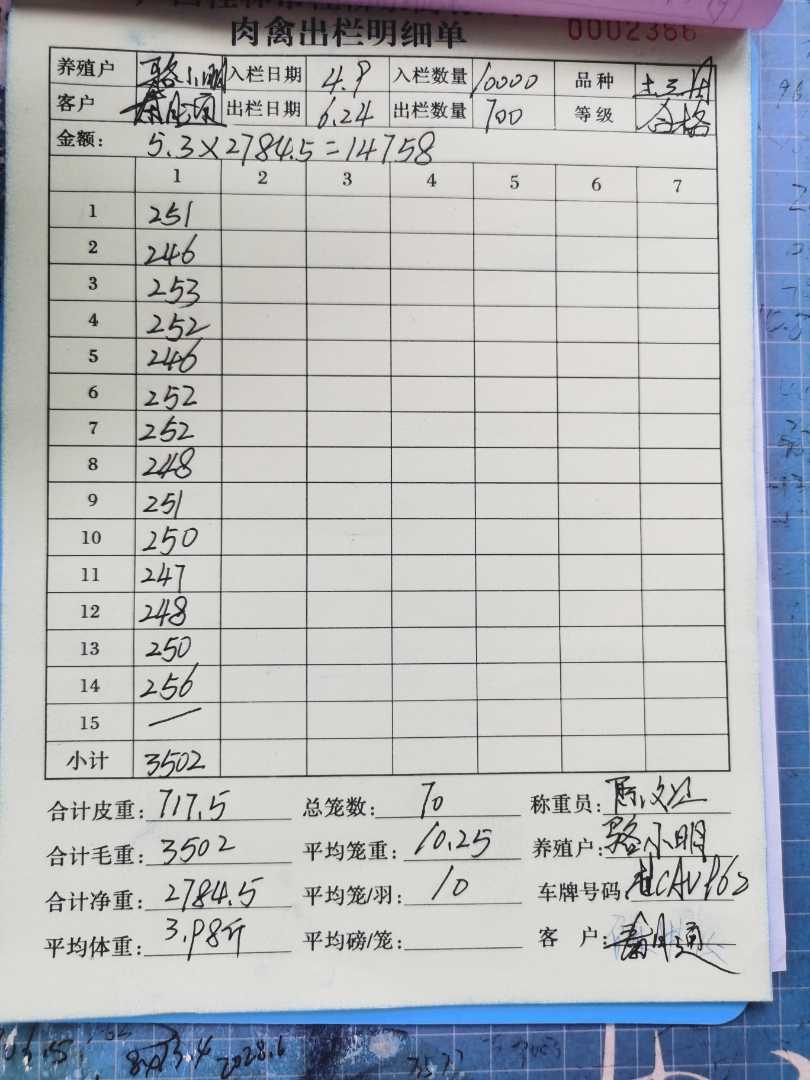 肉禽出栏明细单 0002386
养殖户 骆小明 入栏日期 4.9 入栏数量 10000 品种
客户 出栏日期 6.24 出栏数量 700 等级 合格
金额: 5.3×2784.5=14758
1 2 3 4 5 6 7
1 251
2 246
3 253
4 252
5 246
6 252
7 252
8 248
9 251
10 250
11 247
12 248
13 250
14 256
15 —
小计 3502
合计皮重: 717.5 总笼数: 70 称重员:
合计毛重: 3502 平均笼重: 10.25 养殖户: 骆小明
合计净重: 2784.5 平均笼/羽: 10 车牌号码:
平均体重: 3.98斤 平均磅/笼: 客 户:
8×13.4 2028.6